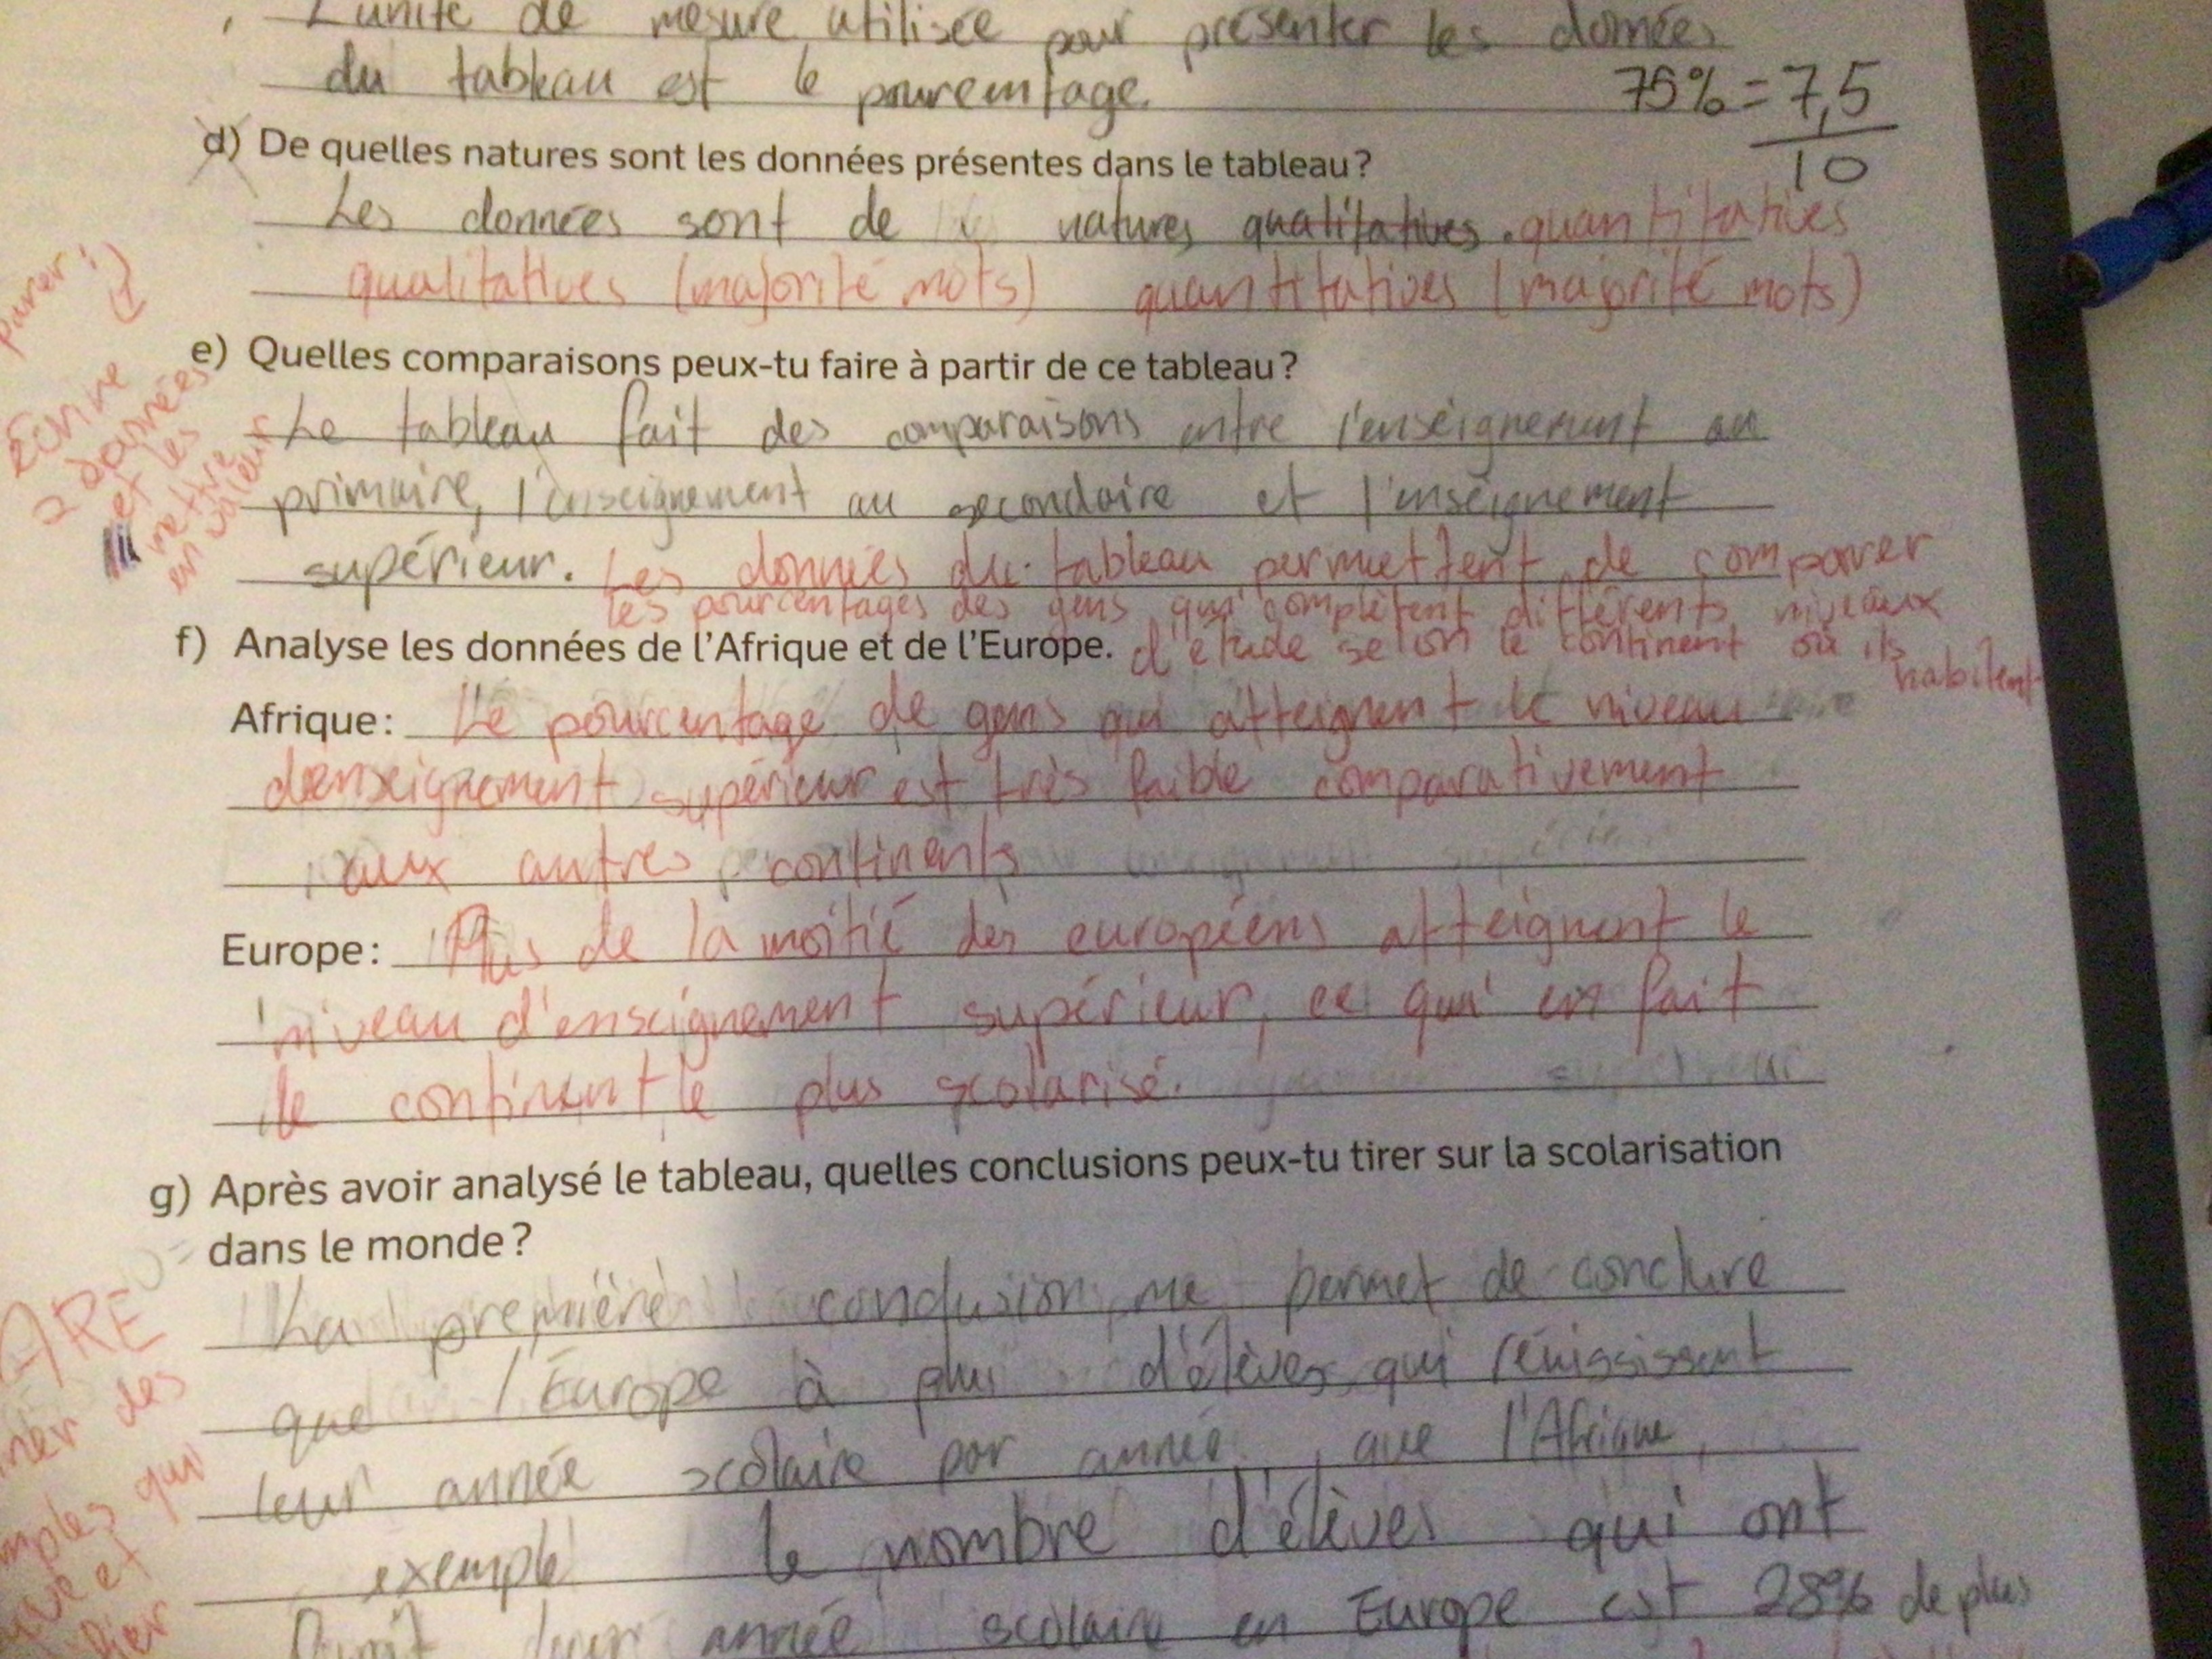 L'unité de mesure utilisée pour présenter les données
du tableau est le pourcentage.
75% = 7,5
10
d) De quelles natures sont les données présentes dans le tableau?
Les données sont de natures qualitatives. quantitatives
qualitatives (majorité mots) quantitatives (majorité mots)
e) Quelles comparaisons peux-tu faire à partir de ce tableau?
Écrire
2 données
et les
mettre
en valeur
Le tableau fait des comparaisons entre l'enseignement au
primaire, l'enseignement au secondaire et l'enseignement
supérieur. Les données du tableau permettent de comparer
les pourcentages des gens qui complètent différents niveaux
f) Analyse les données de l'Afrique et de l'Europe. d'étude selon le continent où ils
habitent
Afrique: Le pourcentage de gens qui atteignent le niveau
d'enseignement supérieur est très faible comparativement
aux autres continents
Europe: Plus de la moitié des européens atteignent le
niveau d'enseignement supérieur, ce qui en fait
le continent le plus scolarisé.
g) Après avoir analysé le tableau, quelles conclusions peux-tu tirer sur la scolarisation
dans le monde?
La première conclusion me permet de conclure
que l'Europe à plus d'élèves qui réussissent
leur année scolaire par année, que l'Afrique,
exemple le nombre d'élèves qui ont
leur année scolaire en Europe est 28% de plus